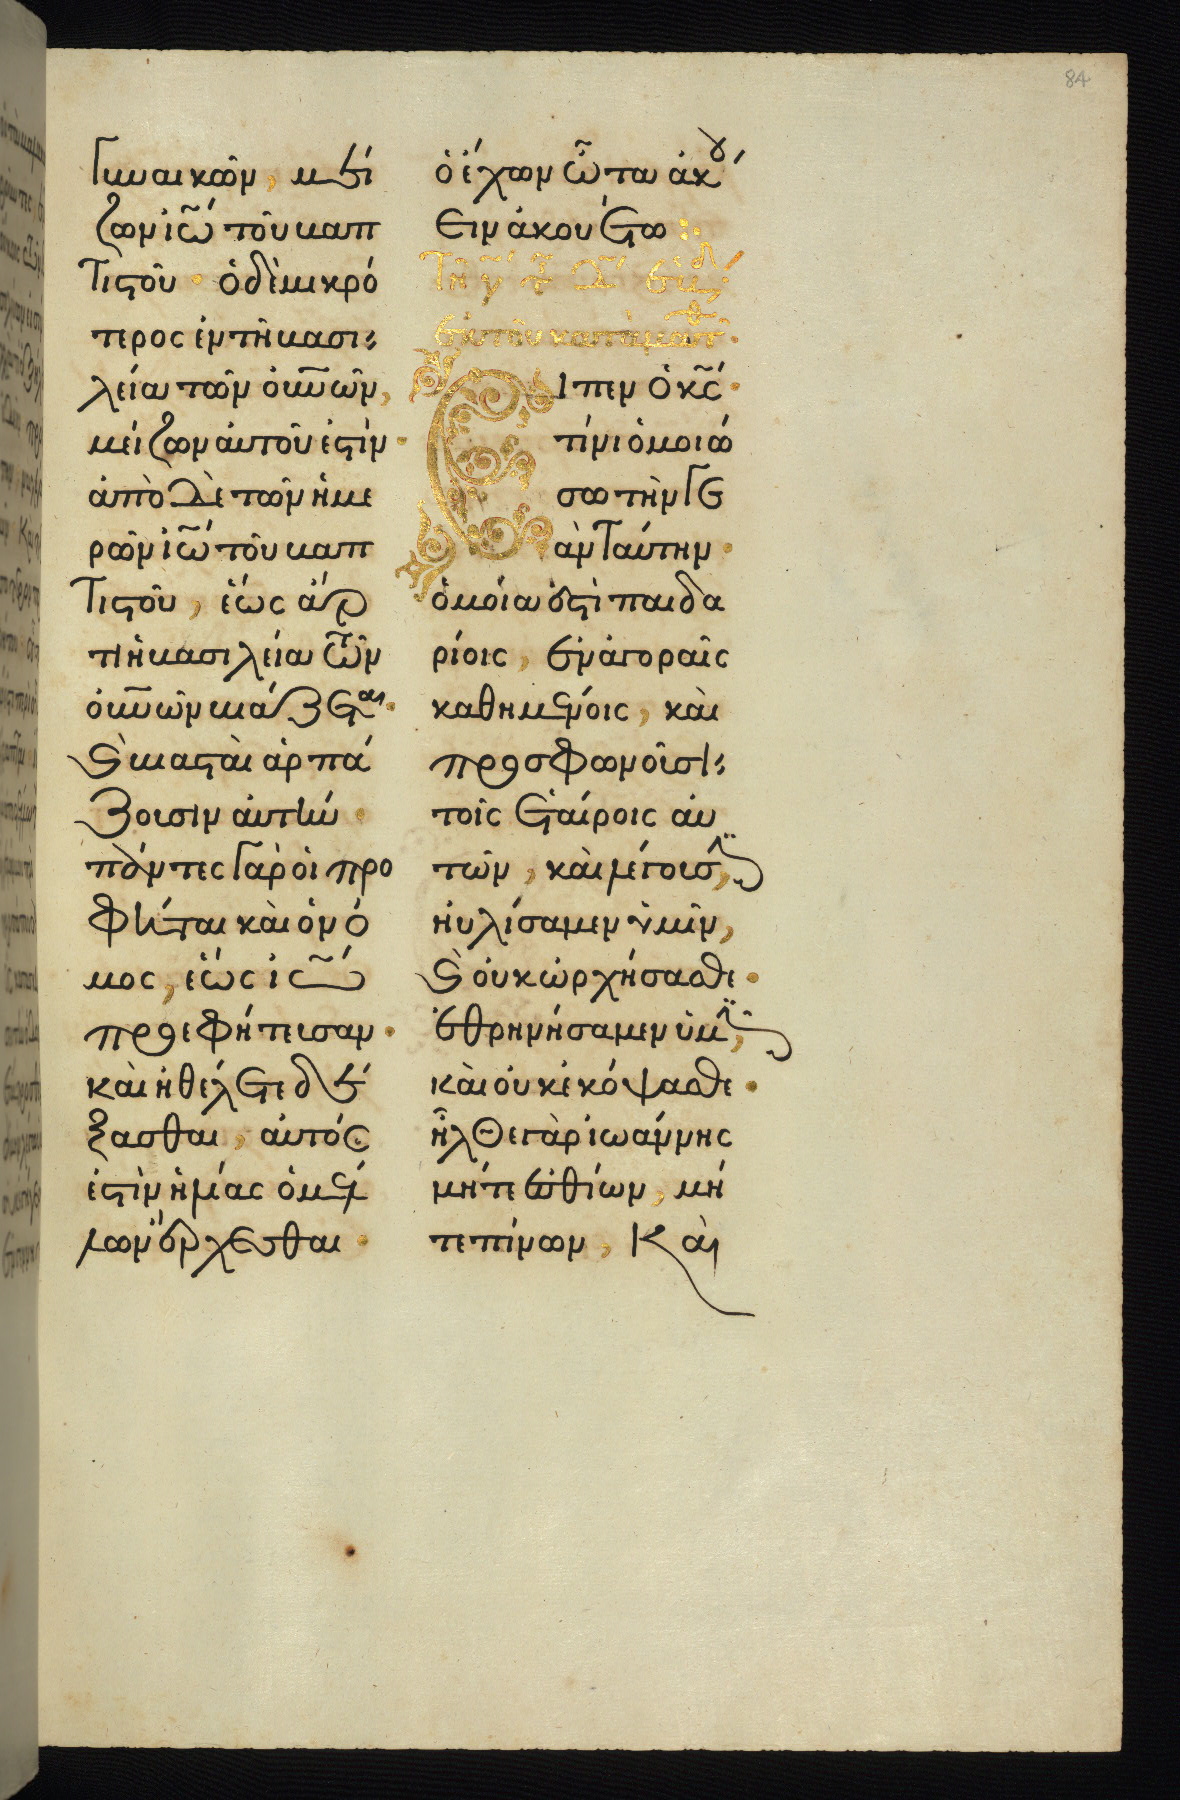 84
γυναικῶν, μεί
ζων ἰω̃´ τοῦ βαπ
τιστοῦ · ὁ δὲ μικρό
τερος ἐν τῆ βασι
λεία τῶν οὐν̅ῶν,
μείζων ἀυτοῦ ἐστίν ·
ἀπὸ δὲ τῶν ἡμε
ρῶν ἰω̃´ τοῦ βαπ
τιστοῦ, ἕως ἄρ
τι ἡ βασιλεία τῶν
οὐν̅ῶν βιάζεται ·
καὶ βιασταὶ ἁρπά
ζουσιν ἀυτήν ·
πάντες γὰρ ὁι προ
φῆται καὶ ὁ νό
μος, ἕως ἰω̃´
προεφήτευσαν ·
καὶ ἠ θέλετε δέ
ξασθαι, ἀυτός
ἐστὶν ἡλίας ὁ μέλ
λων ἔρχεσθαι ·
ὁ ἔχων ὦτα ἀκού
ειν ἀκουέτω :·
Τῆ γ´ τ̃ Δ´ ἑβδ´
ἐκ τοῦ κατὰ ματθ ·
Ειπεν ὁ κς̃ ·
τίνι ὁμοιώ
σω τὴν γε
ὰν ταύτην ·
ὁμοία ἐστὶ παιδα
ρίοις, ἐν ἀγοραῖς
καθημένοις, καὶ
προσφωνοῦσι
τοῖς ἑταίροις ἀυ
τῶν, καὶ λέγουσιν,
ηὐλίσαμεν ὑμῖν,
καὶ ὀυκ ὠρχήσασθε ·
ἐθρηνήσαμεν ὑμῖν,
καὶ ὀυκ ἐκόψασθε ·
ἦλθε γὰρ ἰωάννης
μήτε ἐσθίων, μή
τε πίνων, Καὶ